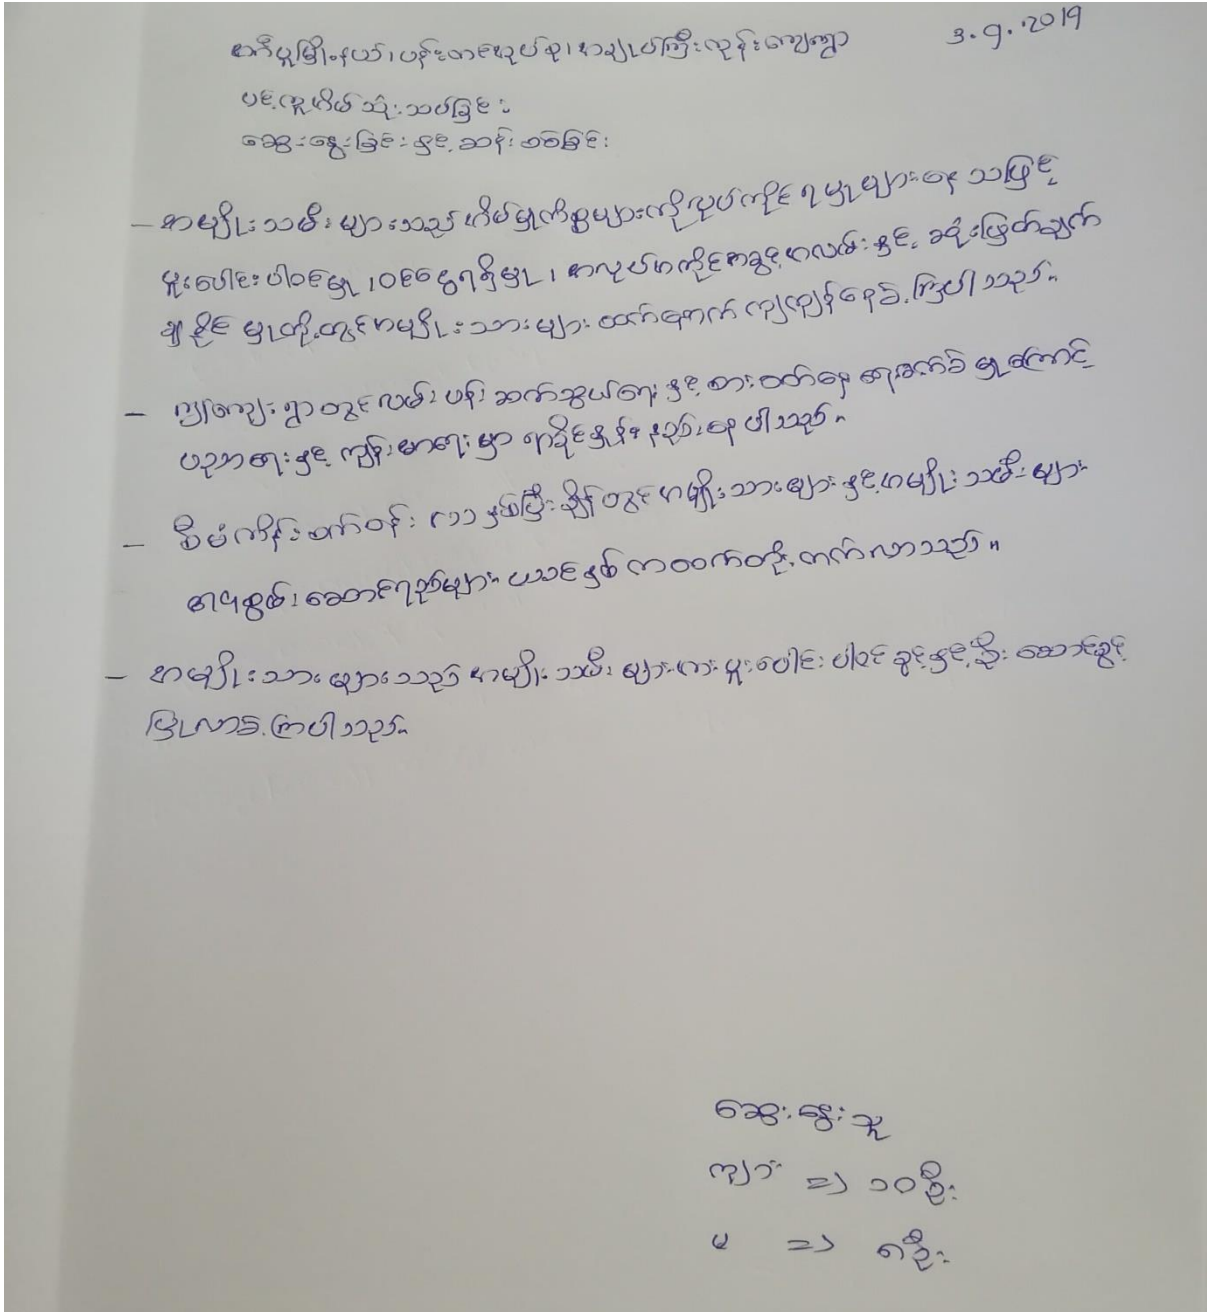 3.9.2019
စကီပူမြို့နယ်၊ ပန်းတင်အုပ်စု၊ အချုပ်ကြီးလှန်းကျေးရွာ
ပင့်ကူအိမ်သုံးသပ်ခြင်း
ဆွေးနွေးခြင်းနှင့်ဆန်းစစ်ခြင်း
– အမျိုးသမီးများသည် အိမ်မှုကိစ္စများကိုလုပ်ကိုင်ရမှုများနေသဖြင့်
ပူးပေါင်းပါဝင်မှု၊ ဝင်ငွေရရှိမှု၊ အလုပ်အကိုင်အခွင့်အလမ်းနှင့် ဆုံးဖြတ်ချက်
ချနိုင်မှုတို့တွင် အမျိုးသားများထက်နောက်ကျကျန်နေခဲ့ကြပါသည်။
– ကျေးရွာတွင် လမ်းပန်းဆက်သွယ်ရေးနှင့် စားဝတ်နေရေးခက်ခဲမှုကြောင့်
ပညာရေးနှင့် ကျန်းမာရေးမှာ ရာခိုင်နှုန်းနည်းနေပါသည်။
– စီမံကိန်းစက်ဝန်း (၁) နှစ်ပြီးချိန်တွင် အမျိုးသားများနှင့် အမျိုးသမီးများ
စွမ်းဆောင်ရည်များ ယခင်နှစ်ကထက်တိုးတက်လာသည်။
– အမျိုးသားများသည် အမျိုးသမီးများအားပူးပေါင်းပါဝင်ခွင့်နှင့် ဦးဆောင်ခွင့်
ပြုလာခဲ့ကြပါသည်။
ဆွေးနွေးသူ
ကျား => ၁၀ဦး
မ => ၈ဦး